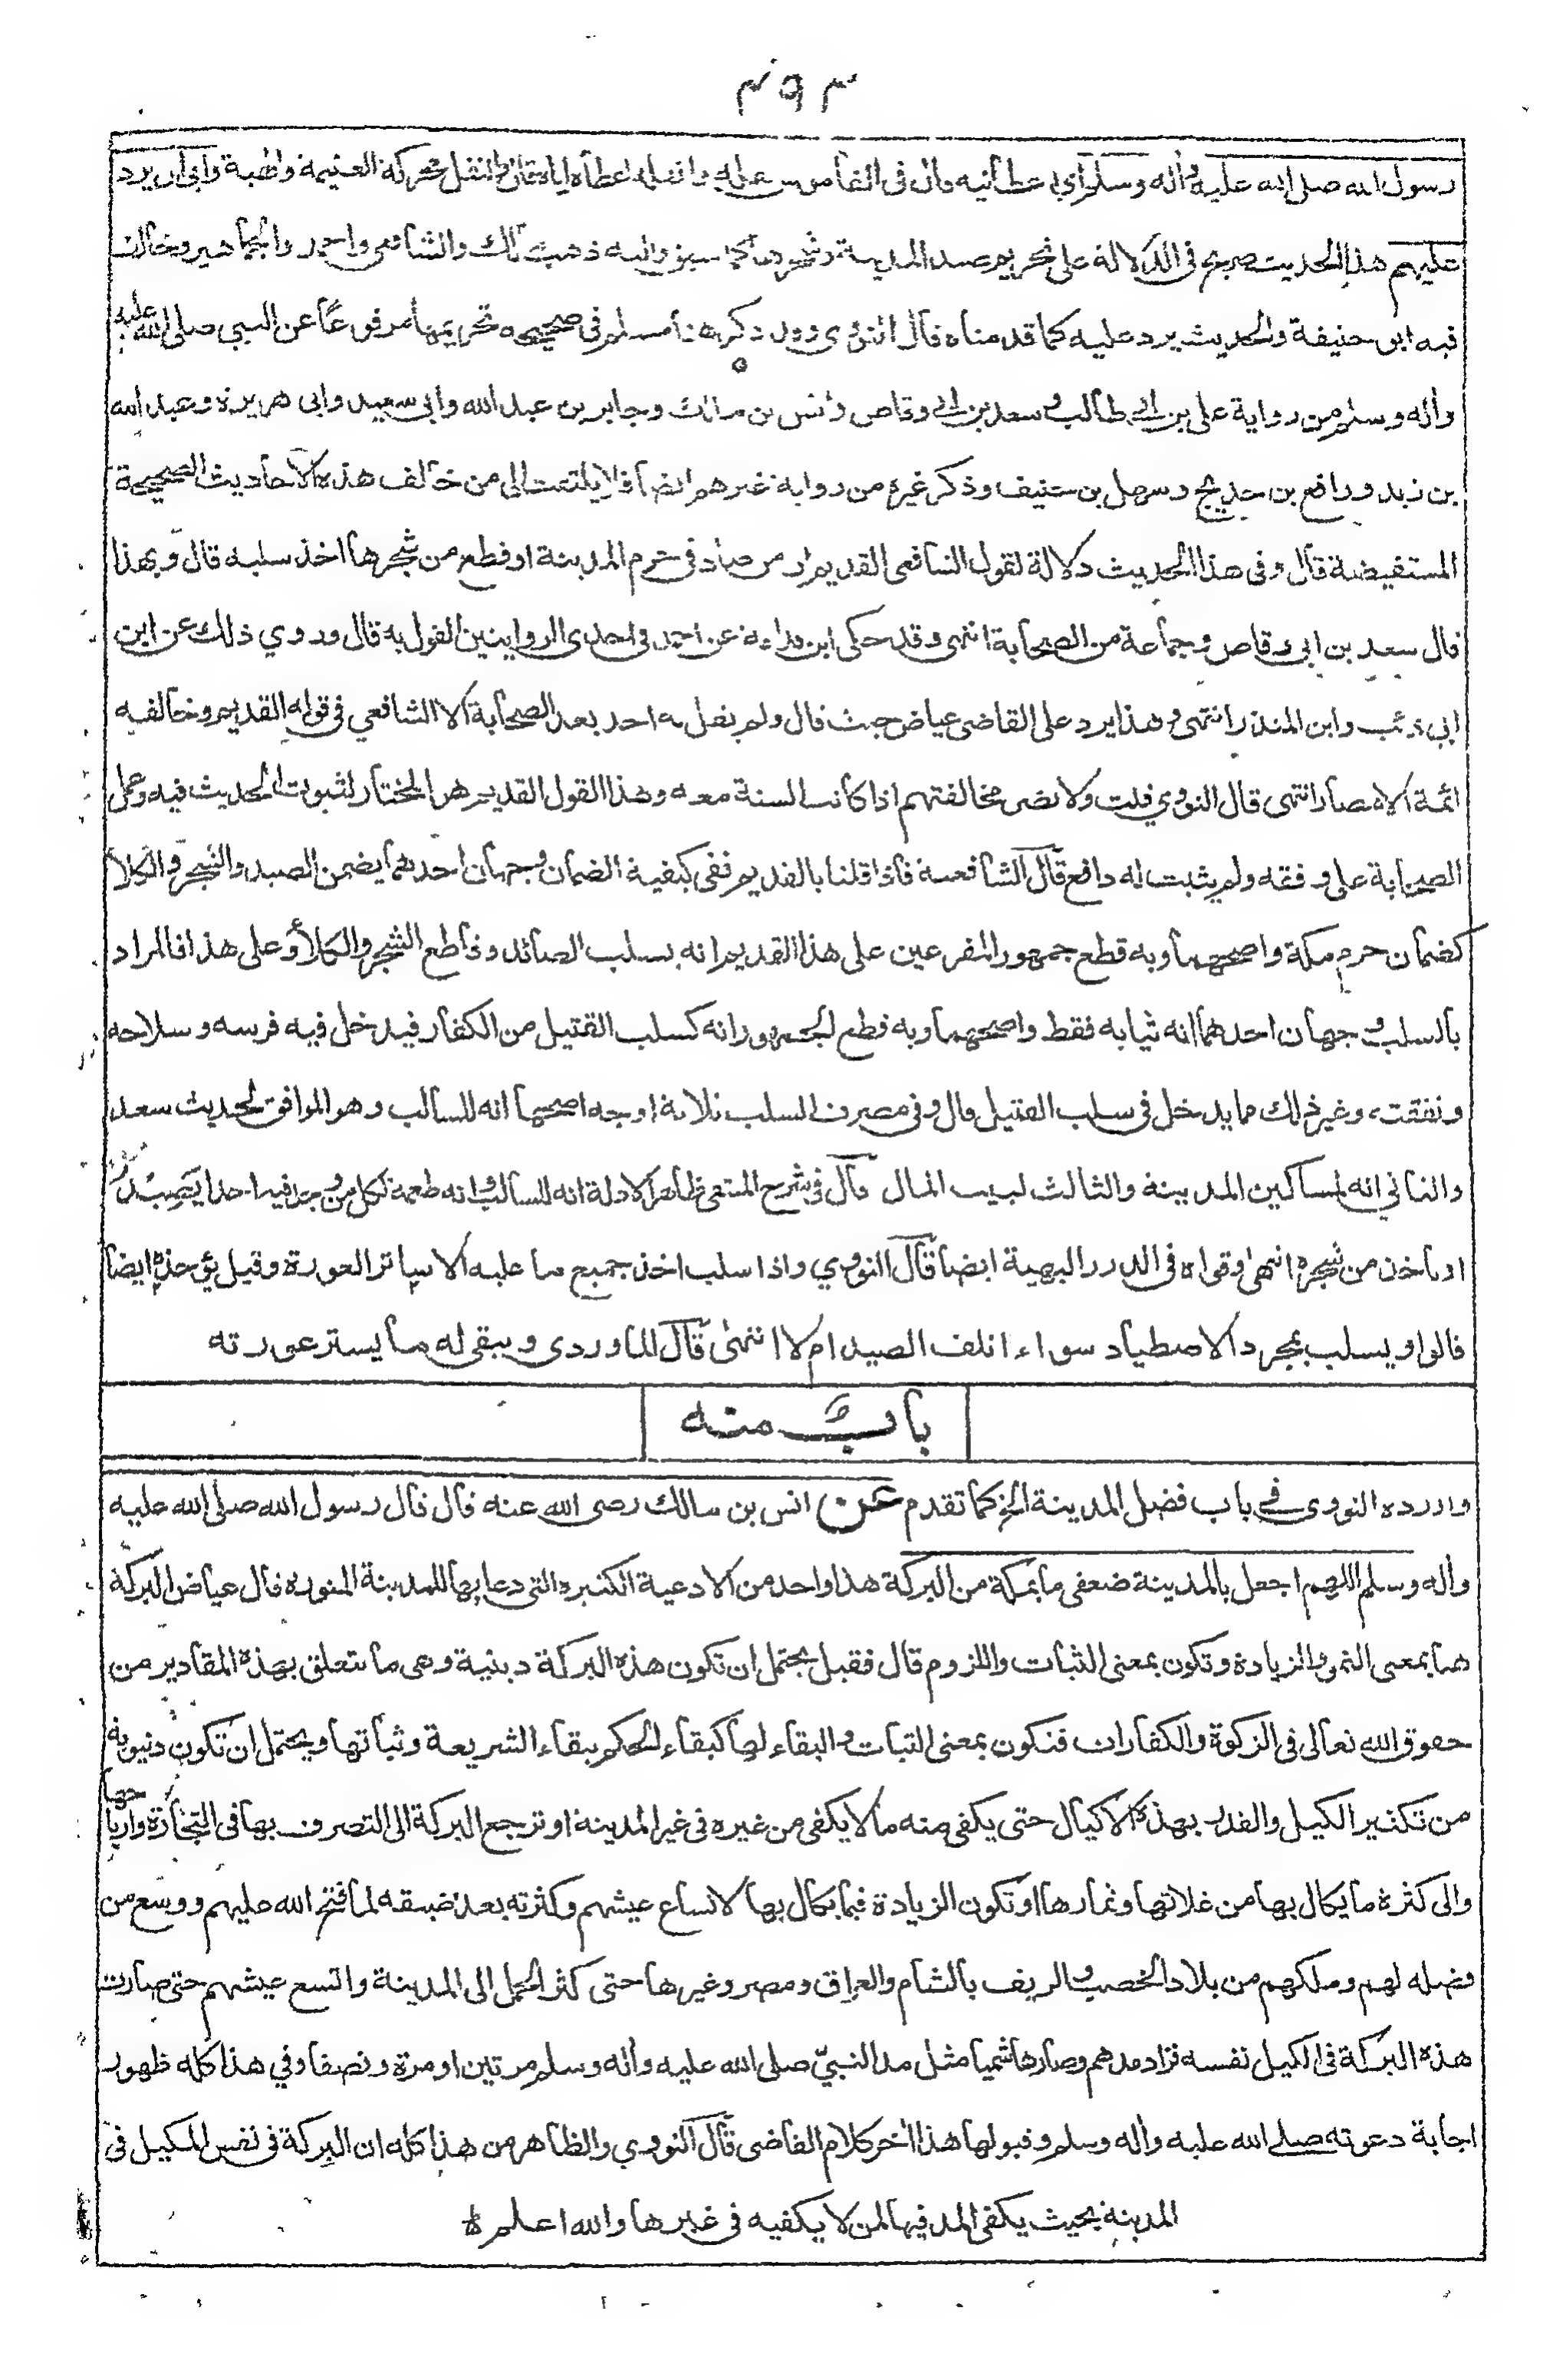 ٤٩٣
رسول الله صلى الله عليه وأله وسلم أي اعطانيه وأن في القاموس نفله وانفله اعطاه اياه وقال النفل محركة الغنيمة والهبة وأبى أن يرد
عليهم هذا الحديث صريح في الدلالة على تحريم صيد المدينة وشجرها كما سبق واليه ذهب مالك والشافعي واحمد والجماهير وخالف
فيه ابو حنيفة والحديث يرد عليه كما قدمناه قال النووي وقد ذكر هنا مسلم في صحيحه تحريمها مرفوعاً عن النبي صلى الله عليه
وأله وسلم من رواية علي بن ابي طالب وسعد بن ابي وقاص وانس بن مالك وجابر بن عبد الله وابي سعيد وابي هريرة وعبد الله
بن زيد ورافع بن خديج وسهل بن حنيف وذكر غيره من رواية غيرهم ايضاً فلا يلتفت الى من خالف هذه الاحاديث الصحيحة
المستفيضة قال وفي هذا الحديث دلالة لقول الشافعي القديم ان من صاد في حرم المدينة او قطع من شجرها اخذ سلبه قال وبهذا
قال سعد بن ابي وقاص وجماعة من الصحابة انتهى وقد حكى ابن قدامة عن احمد في احدى الروايتين القول به قال وروي ذلك عن ابن
ابي ذئب وابن المنذر انتهى وهذا يرد على القاضي عياض حيث قال ولم يقل به احد بعد الصحابة الا الشافعي في قوله القديم وخالفه
ائمة الامصار انتهى قال النووي قلت ولا تضر مخالفتهم اذا كانت السنة معه وهذا القول القديم هو المختار لثبوت الحديث فيه وعمل
الصحابة على وفقه ولم يثبت له دافع قال الشافعية فاذا قلنا بالقديم ففي كيفية الضمان وجهان احدهما يضمن الصيد والشجر والكلأ
كضمان حرم مكة واصحهما وبه قطع جمهور المفرعين على هذا القديم انه يسلب الصائد وقاطع الشجر والكلأ وعلى هذا فالمراد
بالسلب وجهان احدهما انه ثيابه فقط واصحهما وبه قطع الجمهور انه كسلب القتيل من الكفار فيدخل فيه فرسه وسلاحه
ونفقته وغير ذلك مما يدخل في سلب القتيل قال وفي مصرف السلب ثلاثة اوجه اصحها انه للسالب وهو الموافق لحديث سعد
والثاني انه لمساكين المدينة والثالث لبيت المال قال في شرح المنتقى ظاهر الادلة انه للسالب وانه طعمة لكل من وجد فيه احدا يصيد
او ياخذ من شجره انتهى وقواه في الدرر البهية ايضا قال النووي واذا سلب اخذ جميع ما عليه الا ساتر العورة وقيل يؤخذ ايضا
قالوا ويسلب بمجرد الاصطياد سواء اتلف الصيد ام لا انتهى قال الماوردي ويبقى له ما يستر عورته
باب منه
واورده النووي في باب فضل المدينة الخ كما تقدم عن انس بن مالك رضي الله عنه قال قال رسول الله صلى الله عليه
وأله وسلم اللهم اجعل بالمدينة ضعفي ما بمكة من البركة هذا واحد من الادعية الكثيرة التي دعا بها للمدينة المنورة قال عياض البركة
هنا بمعنى النمو والزيادة وتكون بمعنى الثبات واللزوم قال فقيل يحتمل ان تكون هذه البركة دينية وهي ما تتعلق بهذه المقادير من
حقوق الله تعالى في الزكوة والكفارات فتكون بمعنى الثبات والبقاء لها كبقاء الحكم ببقاء الشريعة وثباتها ويحتمل ان تكون دنيوية
من تكثير الكيل والقدر بهذه الاكيال حتى يكفي منه ما لا يكفي من غيره في غير المدينة او ترجع البركة الى التصرف بها في التجارة وارباحها
والى كثرة ما يكال بها من غلاتها وثمارها او تكون الزيادة فيما يكال بها لاتساع عيشهم وكثرته بعد ضيقه لما فتح الله عليهم ووسع من
فضله لهم وملكهم من بلاد الخصب والريف بالشام والعراق ومصر وغيرها حتى كثر الحمل الى المدينة واتسع عيشهم حتى صارت
هذه البركة في الكيل نفسه فزاد مدهم وصار هاشميا مثل مد النبيّ صلى الله عليه وأله وسلم مرتين او مرة ونصفا وفي هذا كله ظهور
اجابة دعوته صلى الله عليه وأله وسلم وقبولها هذا أخر كلام القاضي قال النووي والظاهر من هذا كله ان البركة في نفس المكيل في
المدينة بحيث يكفي المد فيها لمن لا يكفيه في غيرها والله اعلم